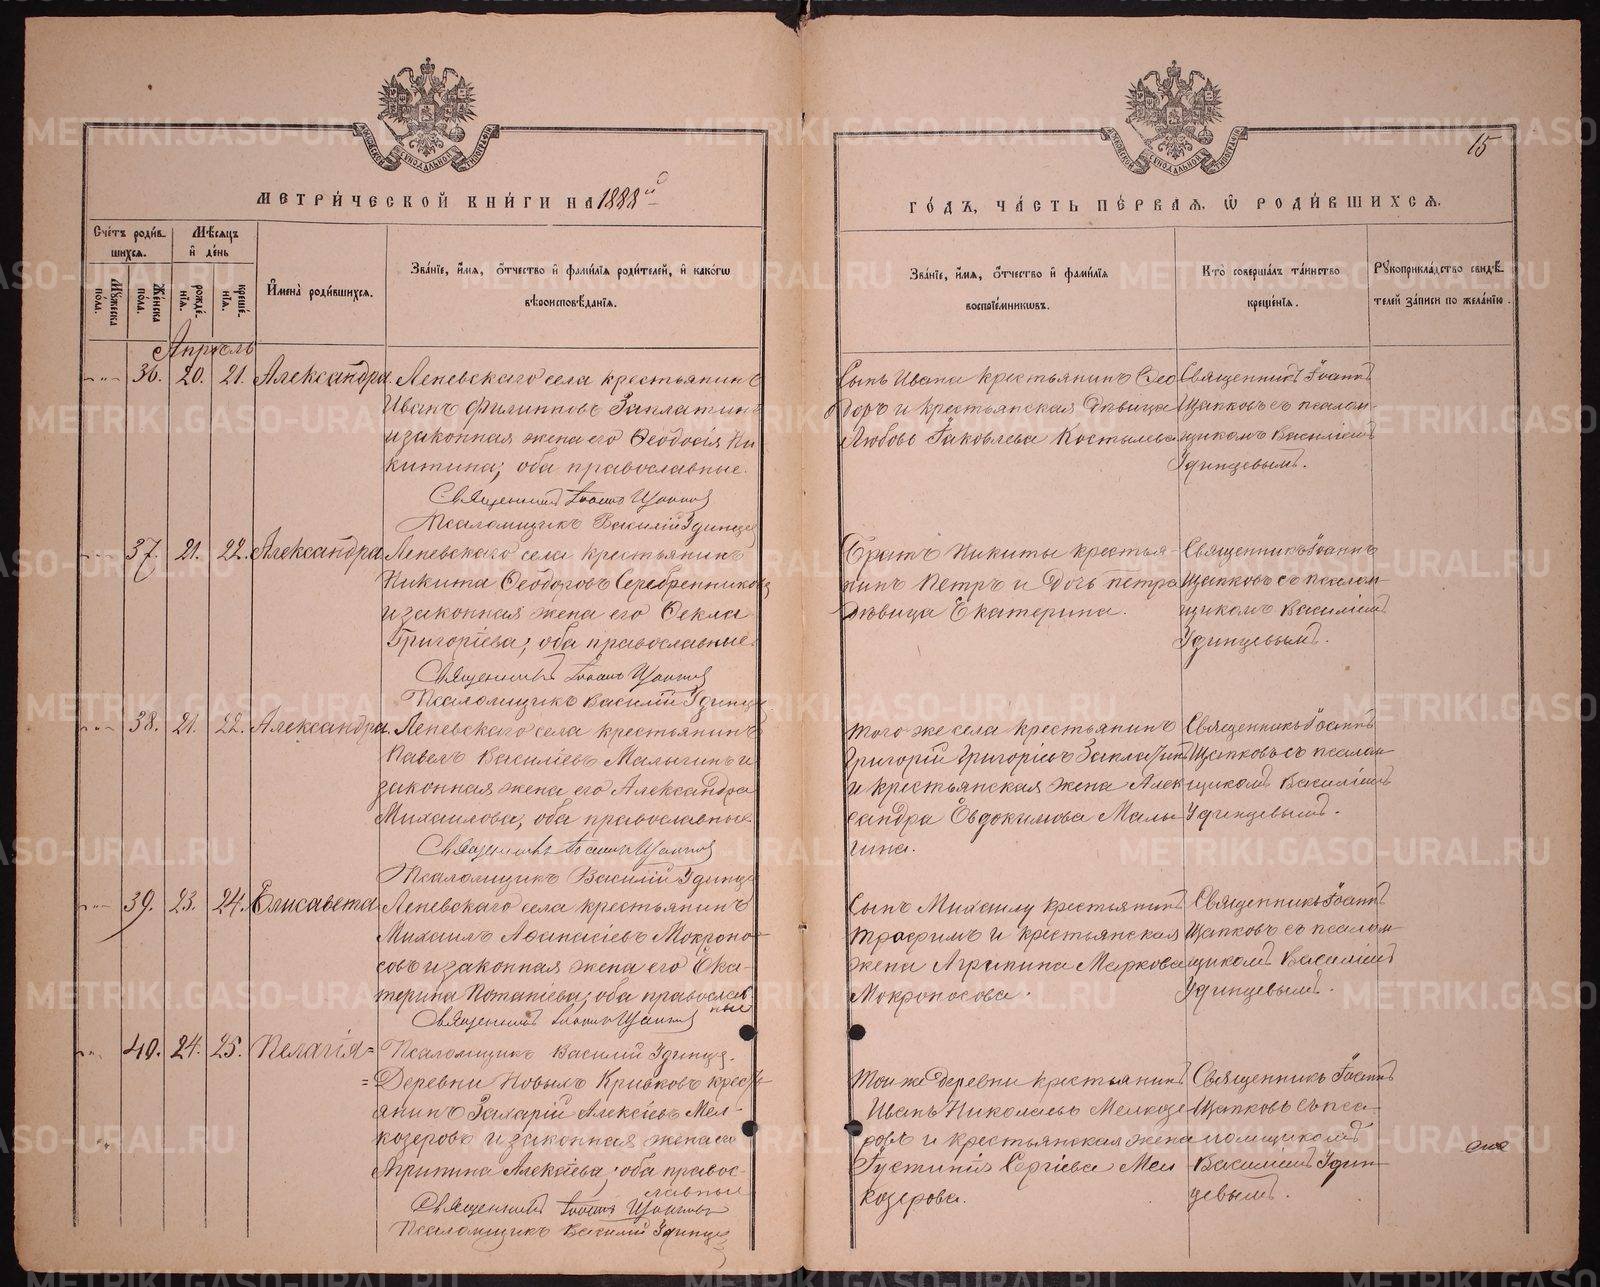 15
МЕТРИ́ЧЕСКОЙ КНИ́ГИ НА 1888й
ГО́ДЪ, ЧА́СТЬ ПЕ́РВАЯ, Ѡ РОДИ́ВШИХСЯ.
Сче́тъ роди́в-
шихся.
Мѣ́сяцъ
и де́нь
Мꙋ́жеска по́ла.
Же́нска по́ла.
рожде́нїя.
креще́нїя.
И́мена роди́вшихся.
Зва́нїе, и́мя, ѻ́тчество и фами́лїя роди́телей, и како́гѡ
вѣроисповѣ́данїя.
Зва́нїе, и́мя, ѻ́тчество и фами́лїя
воспрїе́мникѡвъ.
Кто̀ соверша́лъ та́инство
креще́нїя.
Рꙋкоприкла́дство свидѣ́-
телей за́писи по жела́нїю.
Апрѣль
36. 20. 21. Александра.
Леневскаго села крестьянинъ
Иванъ Филипповъ Заплатинъ
и законная жена его Ѳеодосія Ни-
китина; оба православные.
Священникъ Іоаннъ Щапковъ
Псаломщикъ Василій Удинцев
Сынъ Ивана крестьянинъ Ѳео-
доръ и крестьянская дѣвица
Любовь Іаковлева Костылева
Священникъ Іоаннъ
Щапковъ съ псалом-
щикомъ Василіемъ
Удинцевымъ.
37. 21. 22. Александра.
Леневскаго села крестьянинъ
Никита Ѳеодоровъ Серебренниковъ
и законная жена его Ѳекла
Григоріева; оба православные.
Священникъ Іоаннъ Щапков
Псаломщикъ Василій Удинце
Братъ Никиты крестья-
нинъ Петръ и дочь Петра
дѣвица Екатерина.
Священникъ Іоаннъ
Щапковъ съ псалом-
щикомъ Василіемъ
Удинцевымъ.
38. 21. 22. Александра.
Леневскаго села крестьянинъ
Павелъ Василіевъ Малыгинъ и
законная жена его Александра
Михаилова; оба православные.
Священникъ Іоаннъ Щапков
Псаломщикъ Василій Удинце
того же села крестьянинъ
Григорій Григоріевъ
и крестьянская жена Алек-
сандра Евдокимова Малы-
гина.
Священникъ Іоаннъ
Щапковъ съ псалом-
щикомъ Василіемъ
Удинцевымъ.
39. 23. 24. Елисавета
Леневскаго села крестьянинъ
Михаилъ Аѳанасіевъ Мокроно-
совъ и законная жена его Ека-
терина Потапіева; оба православ-
ные
Священникъ Іоаннъ Щапков
Псаломщикъ Василій Удинце.
Сынъ Михаилу крестьянинъ
Трофимъ и крестьянская
жена Агрипина Маркова
Мокроносова.
Священникъ Іоаннъ
Щапковъ съ псалом-
щикомъ Василіемъ
Удинцевымъ.
40. 24. 25. Пелагія=
=Деревни Новыхъ Кривковъ кресть-
янинъ Захарій Алексіевъ Мел-
козеровъ и законная жена его
Агрипина Алексіева; оба правос-
лавные
Священникъ Іоаннъ Щапковъ
Псаломщикъ Василій Удинце
Той же деревни крестьянинъ
Иванъ Николаевъ Мелкозе-
ровъ и крестьянская жена
Іустинія Сергіева Мел-
козерова.
Священникъ Іоаннъ
Щапковъ съ пса-
ломщикомъ
Василіемъ Удин-
цевымъ.
METRIKI.GASO-URAL.RU